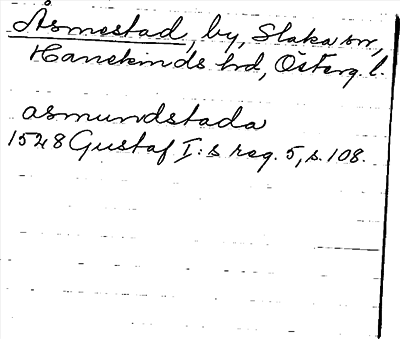 Åsmestad, by, Slaka sn,
Hanekinds hd, Österg. l.
asmundstada
1528 Gustaf I:s reg. 5, s. 108.